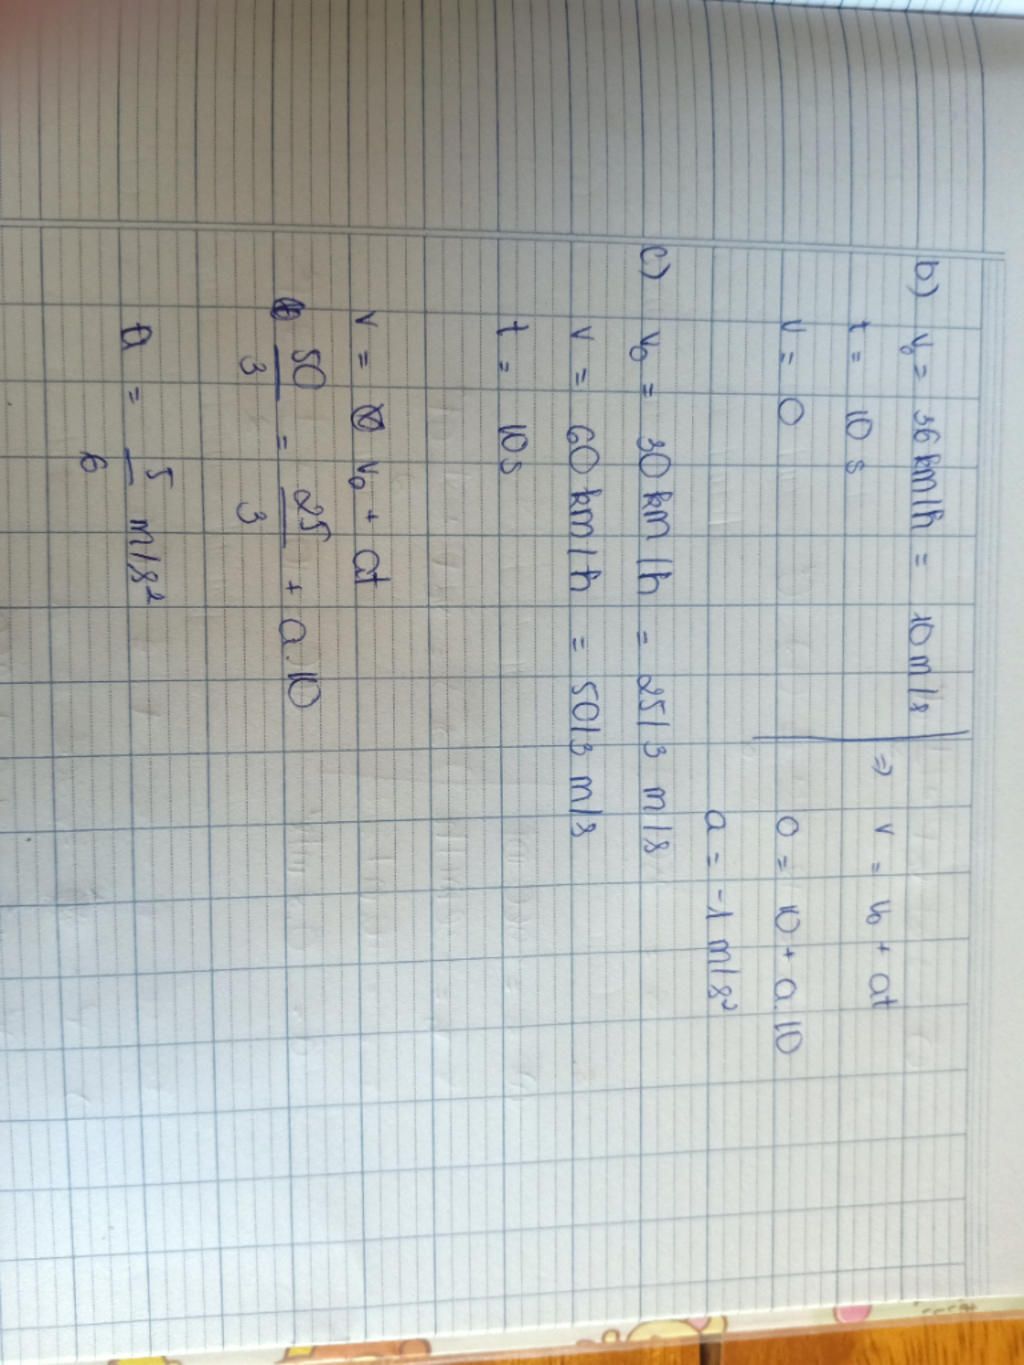 b) v₀ = 36 km/h = 10 m/s
t = 10 s ⇒ v = v₀ + at
v = 0 0 = 10 + a.10
a = -1 m/s²
c) v₀ = 30 km/h = 25/3 m/s
v = 60 km/h = 50/3 m/s
t = 10s
v = v₀ + at
50/3 = 25/3 + a.10
a = 5/6 m/s²